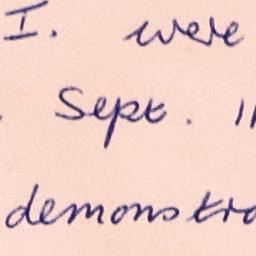 I. were
Sept. 11
demonstra